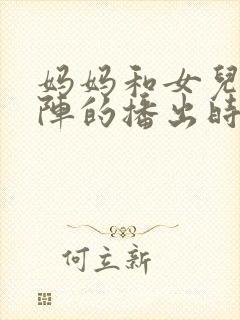 妈妈和女兒
陣的播出時
何立新